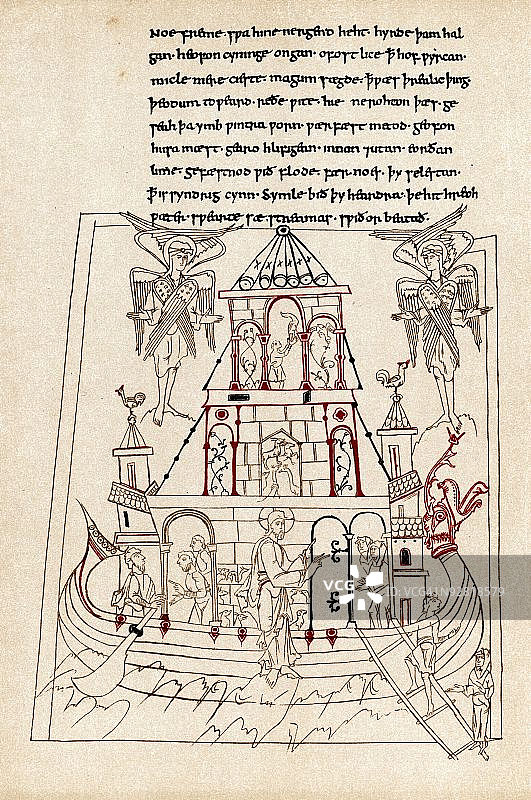 Noe freme· sƿa hine nergend heht· hyrde þam hal
gan· heofon cyninge ongan· ofost lice ꝥ hof ƿyrcan·
micle mere cieste· magum sægde· ꝥ ƿæs þrealic þing·
þeodum toƿeard· reðe ƿite· hie ne rohton þæs· ge
seah þa ymb ƿintra ƿorn· ƿærfæst metod· geofon
husa mæst· gearo hlifigean· innan ⁊ utan· eorðan
lime· gefæstnod ƿið flode· fær noes· þy selestan·
ꝥ is syndrig cynn· Symle bið þy heardra· þe hit hreoh
ƿæter· sƿearte sæ streamas· sƿiðor beatað·
VCG